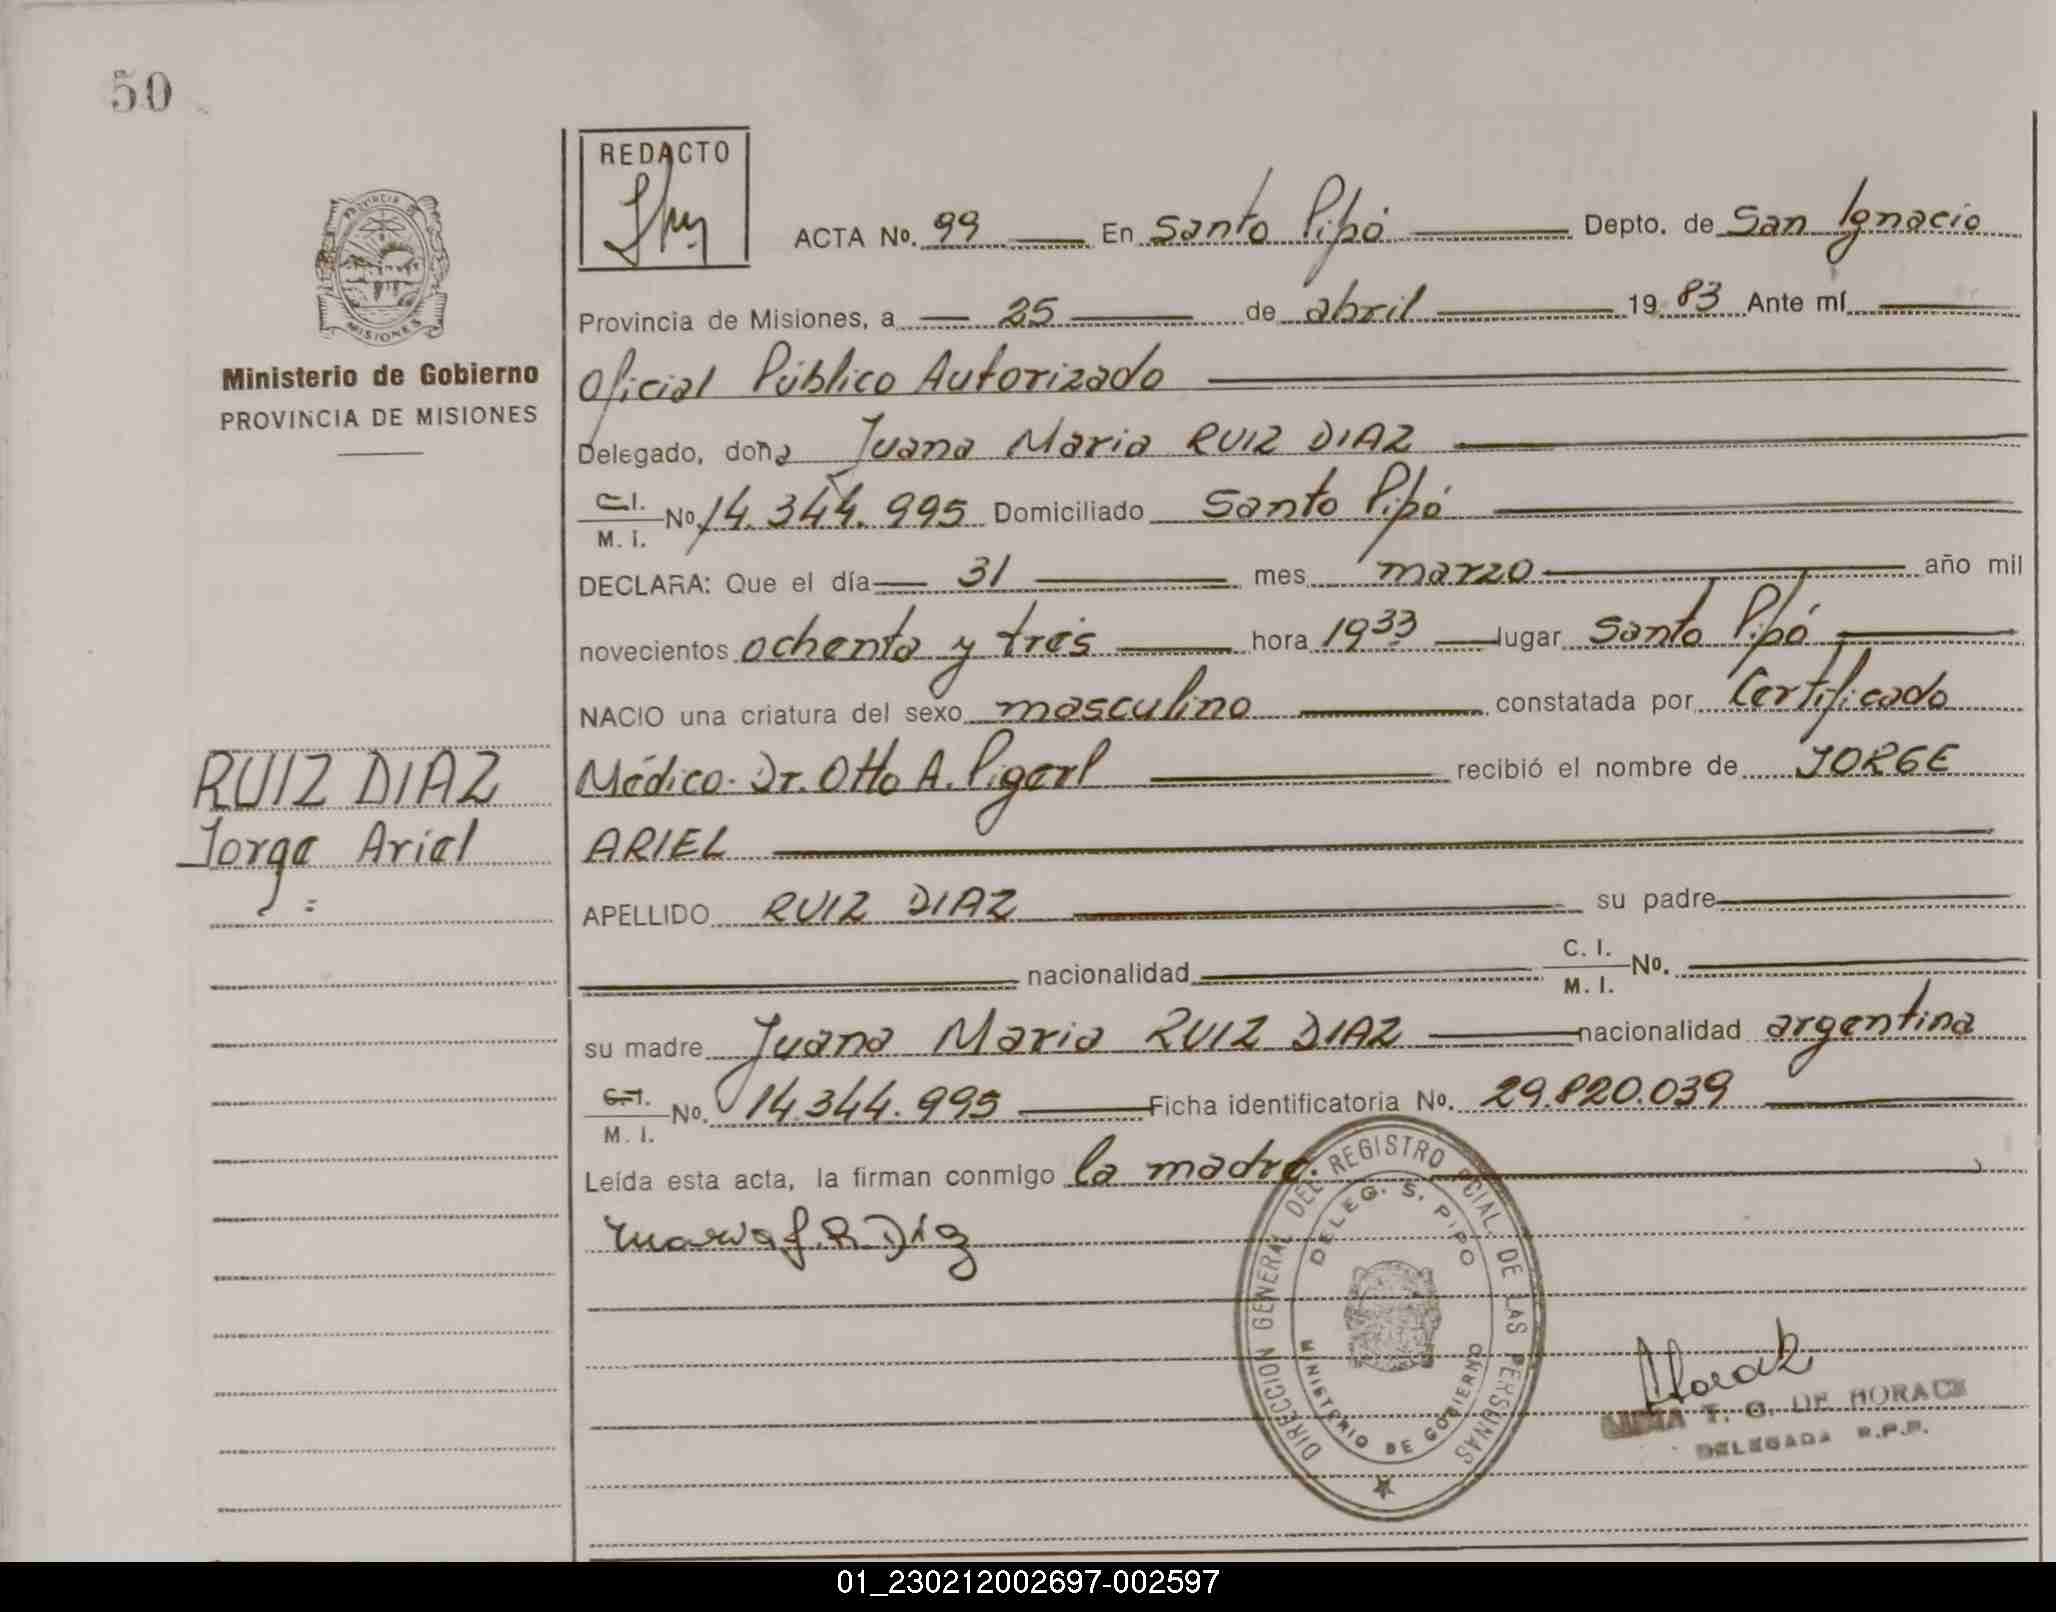 50
REDACTO
ACTA No. 99 En Santo Pipó Depto. de San Ignacio
Provincia de Misiones, a 25 de abril 1983 Ante mí
Oficial Público Autorizado
Delegado, doña Juana Maria RUIZ DIAZ
C.I. M. I. No. 14.344.995 Domiciliado Santo Pipó
DECLARA: Que el día 31 mes marzo año mil
novecientos ochenta y tres hora 19 33 lugar Santo Pipó
NACIO una criatura del sexo masculino constatada por Certificado
Médico- Dr. Otto A. recibió el nombre de JORGE
ARIEL
APELLIDO RUIZ DIAZ su padre
nacionalidad C. I. M. I. No.
su madre Juana Maria RUIZ DIAZ nacionalidad argentina
C.I. M. I. No. 14.344.995 Ficha identificatoria No. 29.820.039
Leída esta acta, la firman conmigo la madre.
PROVINCIA DE MISIONES
Ministerio de Gobierno
PROVINCIA DE MISIONES
RUIZ DIAZ
Jorge Ariel
DIRECCION GENERAL DEL REGISTRO PCIAL. DE LAS PERSONAS
DELEG. S. PIPO
MINISTERIO DE GOBIERNO
T. G. DE HORACK
DELEGADA R.P.P.
01_230212002697-002597